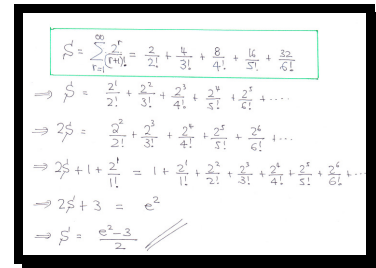 S = ∑_{r=1}^{∞} 2^r/(r+1)! = 2/2! + 4/3! + 8/4! + 16/5! + 32/6!
⇒ S = 2^1/2! + 2^2/3! + 2^3/4! + 2^4/5! + 2^5/6! + ....
⇒ 2S = 2^2/2! + 2^3/3! + 2^4/4! + 2^5/5! + 2^6/6! + ...
⇒ 2S + 1 + 2^1/1! = 1 + 2^1/1! + 2^2/2! + 2^3/3! + 2^4/4! + 2^5/5! + 2^6/6! + ...
⇒ 2S + 3 = e^2
⇒ S = (e^2 - 3)/2